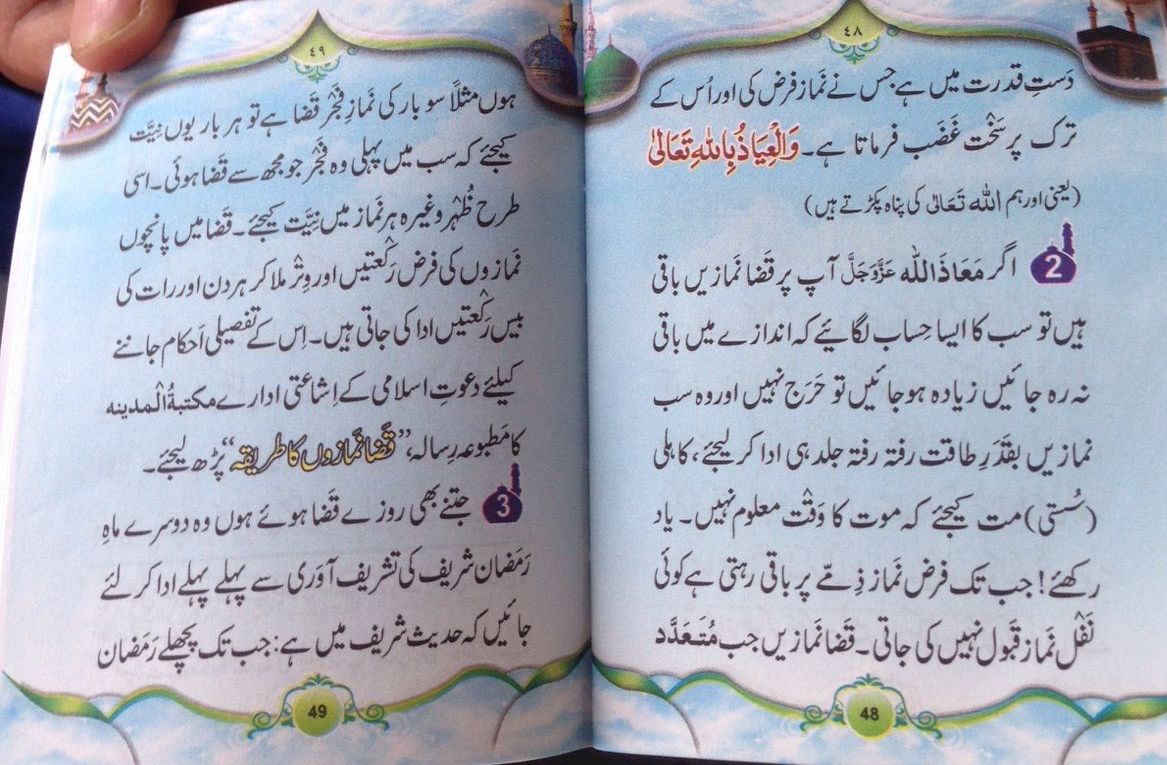 ٤٨
دَستِ قدرت میں ہے جس نے نَماز فرض کی اور اُس کے
ترک پر سَخْت غَضَب فرماتا ہے۔ وَالْعِیَاذُ بِاللہِ تَعَالٰی
(یعنی اور ہم اللہ تَعَالٰی کی پناہ پکڑتے ہیں)
2 اگر مَعَاذَ اللہ عَزَّوَجَلَّ آپ پر قَضا نَمازیں باقی
ہیں تو سب کا ایسا حِساب لگائیے کہ اندازے میں باقی
نہ رہ جائیں زیادہ ہو جائیں تو حَرَج نہیں اور وہ سب
نمازیں بقَدَرِ طاقت رفتہ رفتہ جلد ہی ادا کر لیجئے، کاہلی
(سُستی) مت کیجئے کہ موت کا وَقْت معلوم نہیں۔ یاد
رکھئے! جب تک فرض نَماز ذِمّے پر باقی رہتی ہے کوئی
نَفْل نَماز قَبول نہیں کی جاتی۔ قَضا نَمازیں جب مُتَعَدَّد
48
٤٩
ہوں مثلًا سو بار کی نَمازِ فَجْر قَضا ہے تو ہر بار یوں نِیَّت
کیجئے کہ سب میں پہلی وہ فَجْر جو مجھ سے قَضا ہوئی۔ اسی
طرح ظُہْر وغیرہ ہر نَماز میں نِیَّت کیجئے۔ قَضا میں پانچوں
نَمازوں کی فرض رَکْعتیں اور وِتْر ملا کر ہر دن اور رات کی
بیس رَکْعتیں ادا کی جاتی ہیں۔ اِس کے تفصیلی اَحکام جاننے
کیلئے دعوتِ اسلامی کے اِشاعتی ادارے مکتبۃُ الْمدینہ
کا مَطبوعہ رِسالہ، ”قَضا نَمازوں کا طریقہ“ پڑھ لیجئے۔
3 جتنے بھی روزے قَضا ہوئے ہوں وہ دوسرے ماہِ
رَمَضان شریف کی تشریف آوَری سے پہلے پہلے ادا کر لئے
جائیں کہ حدیث شریف میں ہے: جب تک پچھلے رَمَضان
49